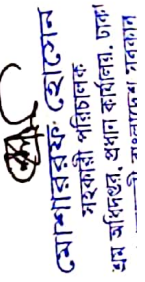 মোশাররফ হোসেন
সহকারী পরিচালক
শ্রম অধিদপ্তর, প্রধান কার্যালয়, ঢাকা
বাংলাদেশ সরকার